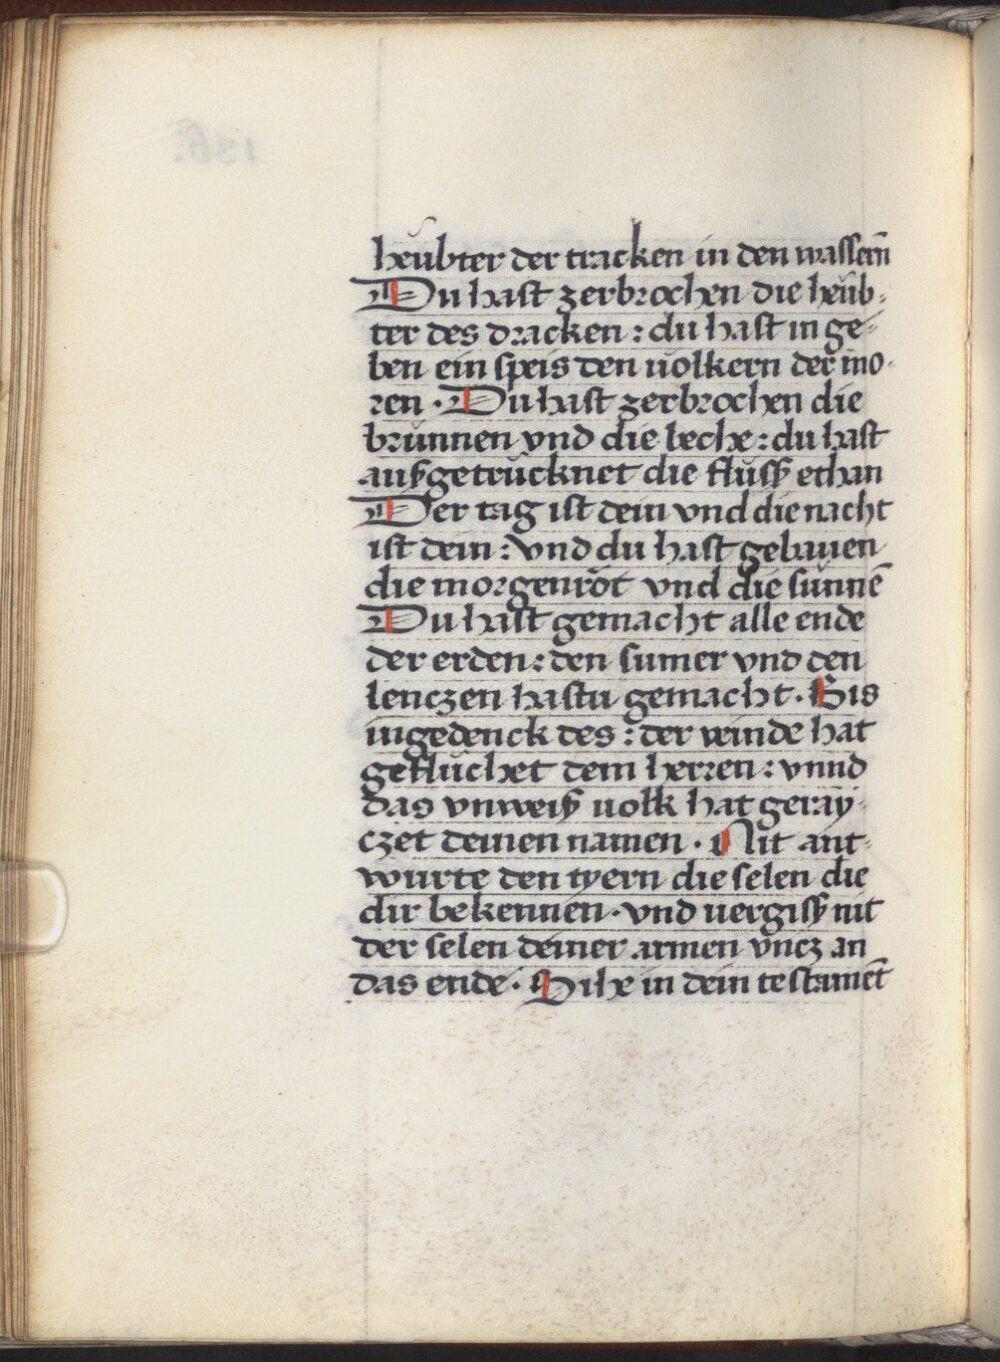 heŭbter der tracken in den wasserñ
Du hast zerbrochen die heŭb-
ter des dracken : du hast in ge-
ben ein speis den uŏlkern der mo-
ren · Du hast zerbrochen die
brŭnnen vnd die beche : du hast
außgetrŭcknet die flŭsß ethan
Der tag ist dein vnd die nacht
ist dein : vnd du hast gebauen
die morgenrŏt vnd die sunnē
Du hast gemacht alle ende
der erden : den sumer vnd den
lenczen hastu gemacht · Bis
ingedenck des : der veinde hat
gefluchet dem herren : vnnd
das vnweiß uolk hat geray-
czet deinen namen · Nit ant-
wurte den tyern die selen die
dir bekennen · vnd uergisß nit
der selen deiner armen vncz an
das ende · Sihe in dein testamēt